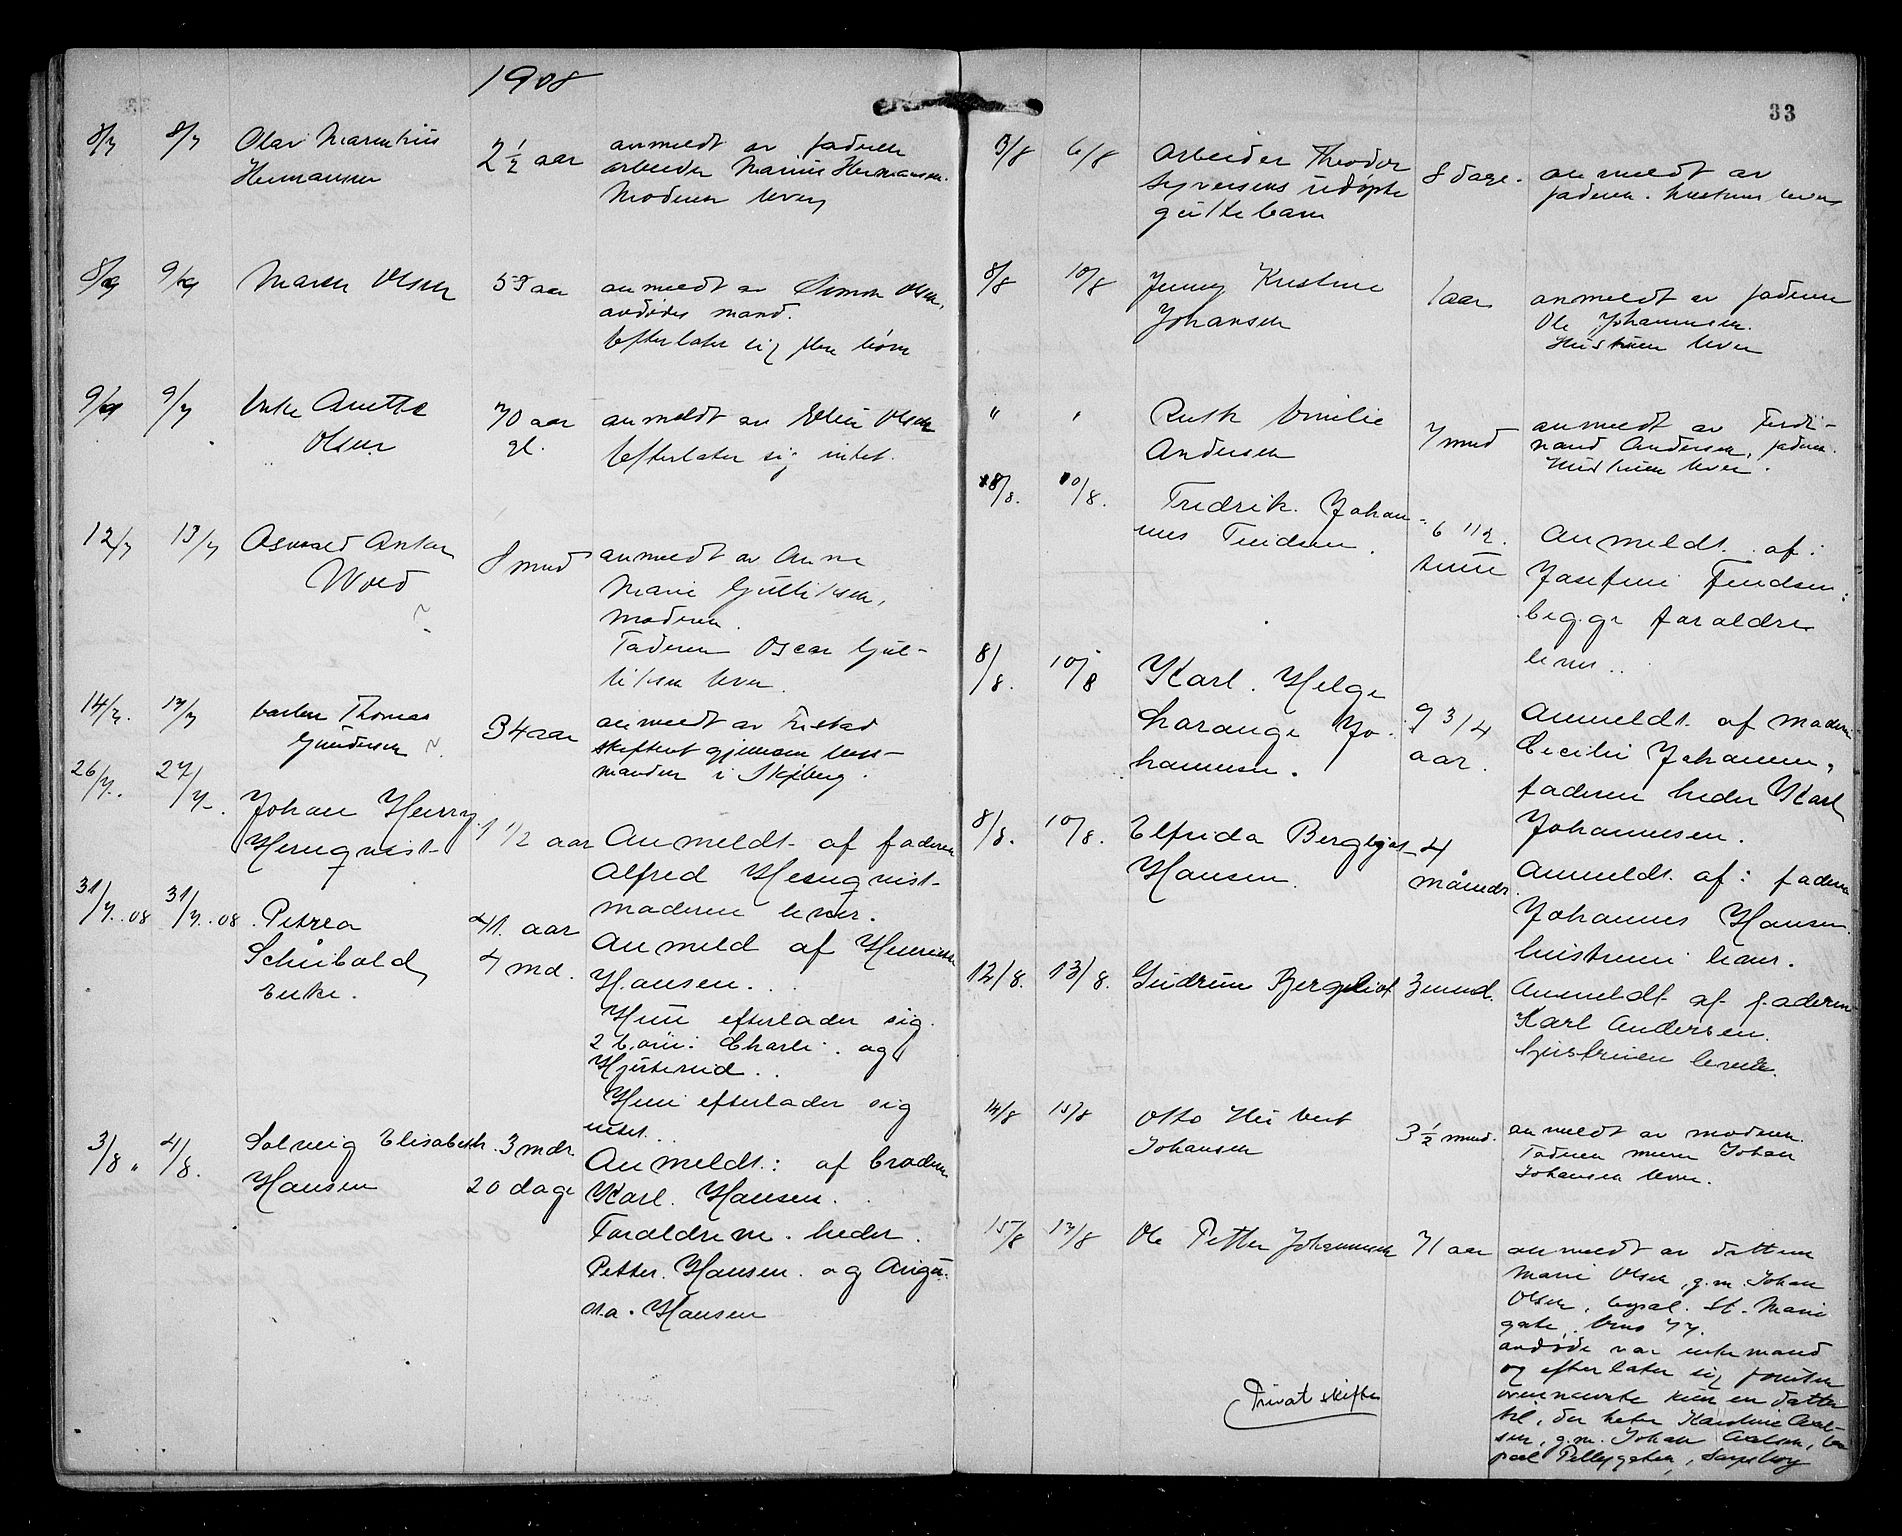 1908
8/7 8/7 Olav Marentius
Hermansen
2 1/2 aar
anmeldt av faderen
arbeider Marius Hermansen.
Moderen lever
8/7 9/7 Maren Olsen
59 aar
anmeldt av Simon Olsen,
avdødes mand.
Efterlater sig flere børn
9/7 9/7 Enke Anette
Olsen
70 aar
gl.
anmeldt av Elin Olsen
Efterlater sig intet.
12/7 13/7 Asvald Anker
Wold
8 mnd
anmeldt av Anna
Marie Gulliksen,
moderen.
Faderen Oscar Gul-
liksen lever.
14/7. 17/7 Thomas
Gundersen
34 aar
anmeldt av
skiftet gjennem lens-
manden i Skjeberg.
26/7. 27/7. Johan Henry
Hernqvist
1 1/2 aar
Anmeldt af faderen
Alfred Hernqvist
moderen lever.
31/7.08 31/7.08 Petrea
Schibold
Enke.
41. aar
4 md.
Anmeld af Henrikke
Hansen.
Hun efterlader sig
2 børn: Charli. og
Hun efterlader sig
intet.
3/8 4/8. Solveig Elisabeth
Hansen
3 mdr
20 dage
Anmeldt: af broderen
Karl. Hansen.
Foraldrene heder
Petter. Hansen. og Augu-
sta. Hansen
33
3/8 6/8 arbeider Theodor
Syversens udøpte
guttebarn
8 dage.
anmeldt av
faderen. hustruen lever
8/8 10/8 Jenny Kristine
Johansen
1 aar
anmeldt av faderen
Ole Johannesen.
Hustruen lever
" " Ruth Emilie
Andersen
7 mnd
anmeldt av Ferdi-
nand Andersen, faderen.
Hustruen lever.
8/8. 10/8. Fredrik. Johan-
nes Freidsen.
6 1/2.
time
Anmeldt. af:
Josefine
begge foraldre
lever.
8/8. 10/8 Karl. Helge
Jo-
hannesen.
9 3/4
aar.
Anmeldt. af moderen
Cecilie Johannesen,
faderen heder Karl
Johannesen.
8/8. 10/8. Elfrida Bergljot
Hansen.
4
måneder.
Anmeldt. af: faderen
Johannes Hansen.
hustruen lever.
12/8. 13/8. Gudrun Bergliot
3 mnd.
Anmeldt af faderen
Karl Andersen.
hustruen levende.
14/8 15/8 Otto Hubert
Johansen
3 1/2 mnd.
anmeldt av moderen.
Faderen murer Johan
Johansen lever.
15/8 17/8 Ole Petter Johannesen
71 aar
anmeldt av datteren
Marie Olsen, g.m. Johan
Olsen, bopæl. St. Marie
gate, hus 77.
avdøde var enkemand
og efterlater sig foruten
ovennævnte kun en datter
til, der heter Karoline Axel-
sen, g.m. Johan Axelsen, bo
pæl Pellygaten, Sarpsborg
Privat skifte